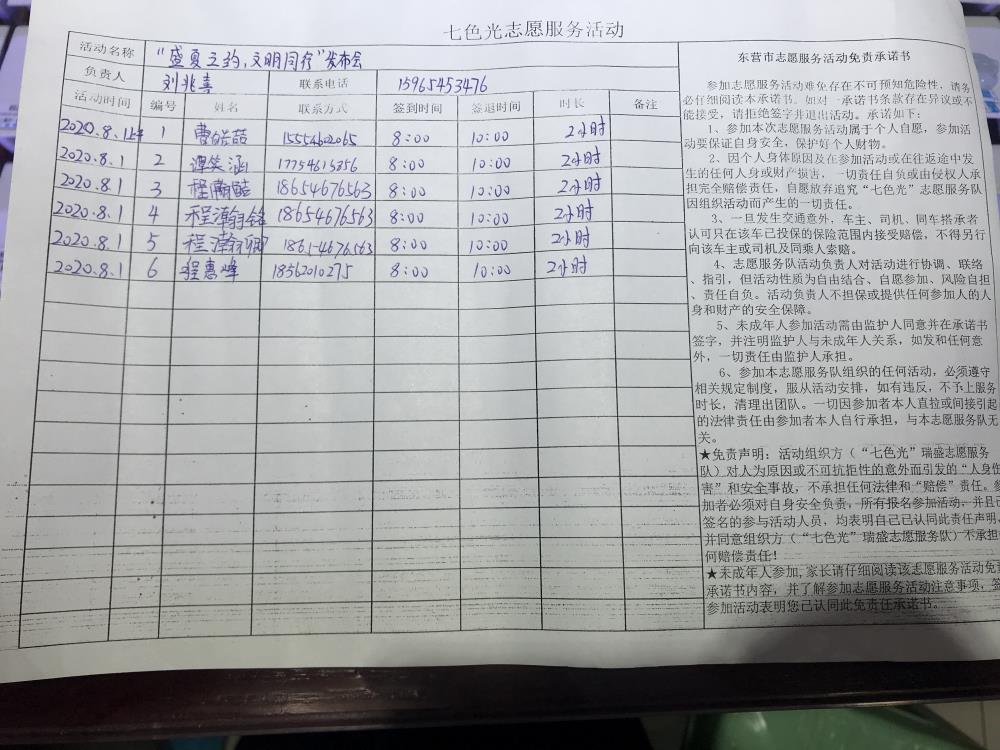 七色光志愿服务活动
活动名称 “盛夏之约，文明同行”发布会
负责人 刘兆喜 联系电话 15965453476
活动时间 编号 姓名 联系方式 签到时间 签退时间 时长 备注
2020.8.1 1 曹皓喆 15554602065 8:00 10:00 2小时
2020.8.1 2 谭笑涵 17754615856 8:00 10:00 2小时
2020.8.1 3 程瀚皓 18654676563 8:00 10:00 2小时
2020.8.1 4 程瀚铭 18654676563 8:00 10:00 2小时
2020.8.1 5 程瀚 18654676563 8:00 10:00 2小时
2020.8.1 6 程惠峰 18562010275 8:00 10:00 2小时
东营市志愿服务活动免责承诺书
参加志愿服务活动难免存在不可预知危险性，请务
必仔细阅读本承诺书。如对一承诺书条款存在异议或不
能接受，请拒绝签字并退出活动。承诺如下：
1、参加本次志愿服务活动属于个人自愿，参加活
动要保证自身安全，保护好个人财物。
2、因个人身体原因及在参加活动或在往返途中发
生的任何人身或财产损害，一切责任自负或由侵权人承
担完全赔偿责任，自愿放弃追究“七色光”志愿服务队
因组织活动而产生的一切责任。
3、一旦发生交通意外，车主、司机、同车搭乘者
认可只在该车已投保的保险范围内接受赔偿，不得另行
向该车主或司机及同乘人索赔。
4、志愿服务队活动负责人对活动进行协调、联络
、指引，但活动性质为自由结合、自愿参加、风险自担
、责任自负。活动负责人不担保或提供任何参加人的人
身和财产的安全保障。
5、未成年人参加活动需由监护人同意并在承诺书
签字，并注明监护人与未成年人关系，如发和任何意
外，一切责任由监护人承担。
6、参加本志愿服务队组织的任何活动，必须遵守
相关规定制度，服从活动安排，如有违反，不予上服务
时长，清理出团队。一切因参加者本人直拉或间接引起
的法律责任由参加者本人自行承担，与本志愿服务队无
关。
★免责声明：活动组织方（“七色光”瑞盛志愿服务
队）对人为原因或不可抗拒性的意外而引发的“人身伤
害”和安全事故，不承担任何法律和“赔偿”责任。参
加者必须对自身安全负责，所有报名参加活动，并且已
签名的参与活动人员，均表明自己已认同此责任声明，
并同意组织方（“七色光”瑞盛志愿服务队）不承担任
何赔偿责任！
★未成年人参加，家长请仔细阅读该志愿服务活动免责
承诺书内容，并了解参加志愿服务活动注意事项，签
参加活动表明您已认同此免责任承诺书。